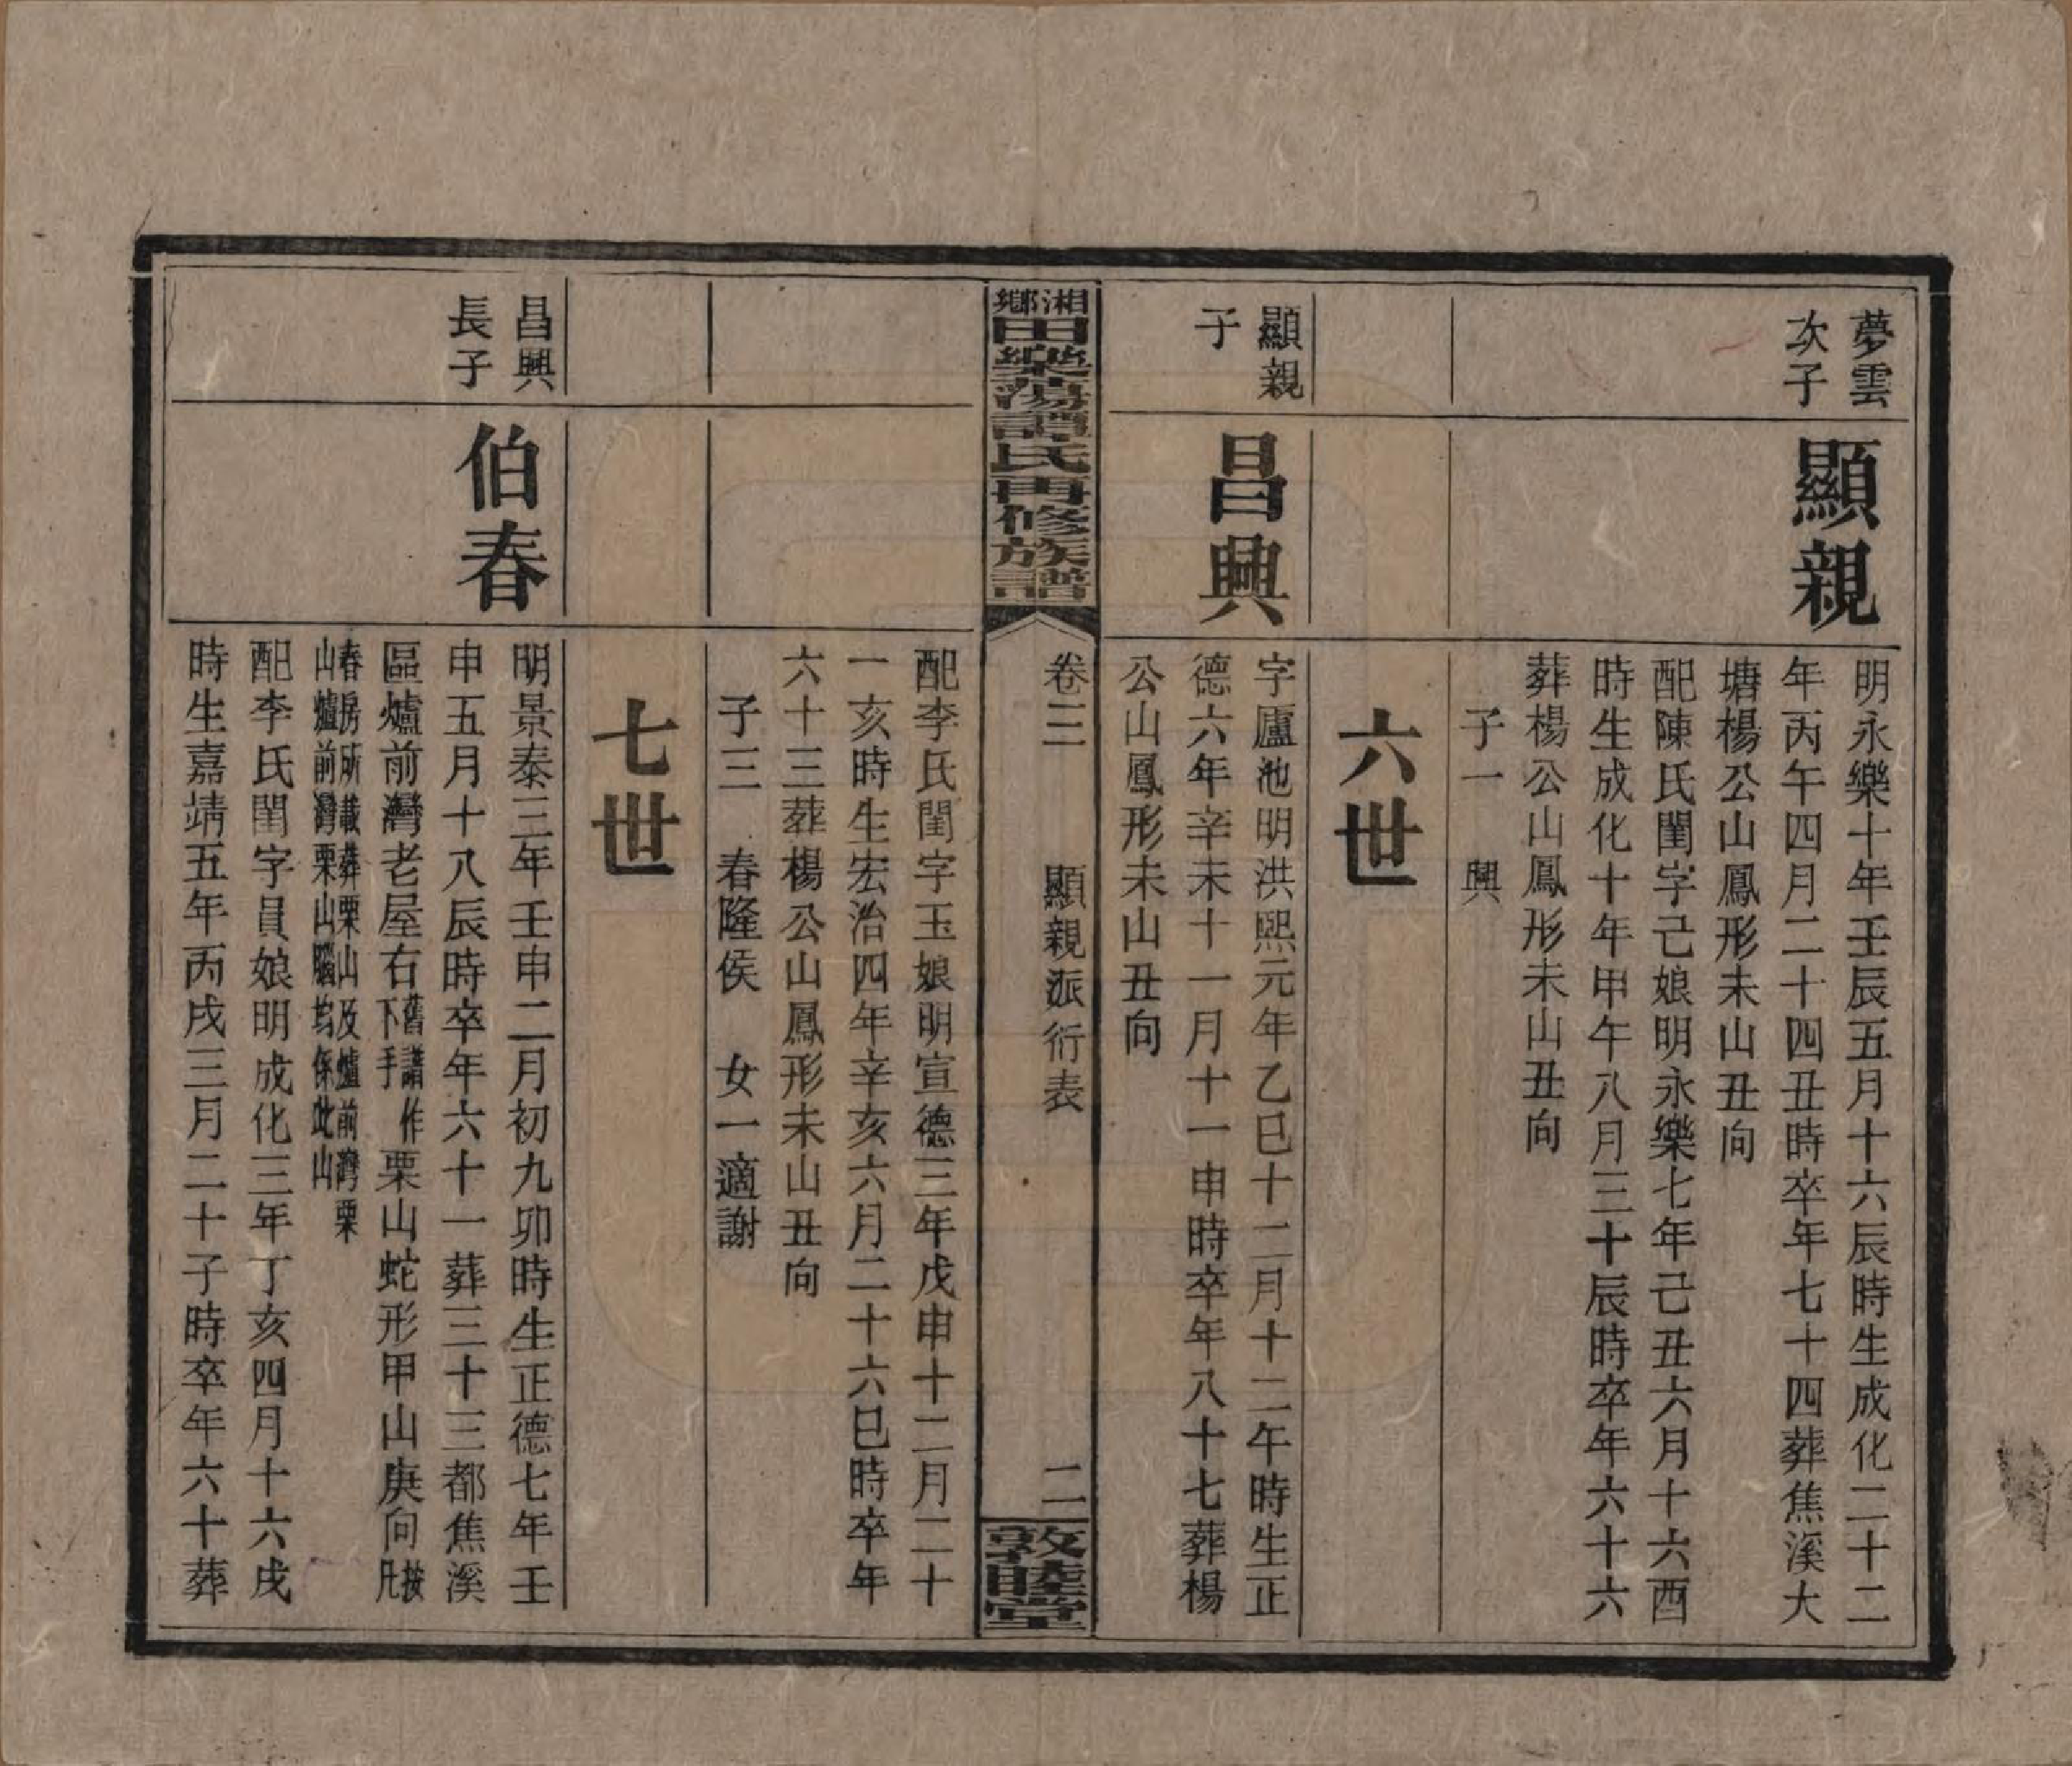 夢雲
次子
顯親
明永樂十年壬辰五月十六辰時生成化二十二
年丙午四月二十四丑時卒年七十四葬焦溪大
塘楊公山鳳形未山丑向
配陳氏閨字己娘明永樂七年己丑六月十六酉
時生成化十年甲午八月三十辰時卒年六十六
葬楊公山鳳形未山丑向
子一　興
六世
顯親
子
昌興
字廬池明洪熙元年乙巳十二月十二午時生正
德六年辛未十一月十一申時卒年八十七葬楊
公山鳳形未山丑向
湘鄉田樂蕩譚氏再修族譜
卷三　顯親派衍表　二
敦睦堂
配李氏閨字玉娘明宣德三年戊申十二月二十
一亥時生宏治四年辛亥六月二十六巳時卒年
六十三葬楊公山鳳形未山丑向
子三　春隆侯　女一適謝
七世
昌興
長子
伯春
明景泰三年壬申二月初九卯時生正德七年壬
申五月十八辰時卒年六十一葬三十三都焦溪
區爐前灣老屋右舊譜作下手栗山蛇形甲山庚向按凡
春房所載葬栗山及爐前灣栗
山爐前灣栗山腦均係此山
配李氏閨字員娘明成化三年丁亥四月十六戌
時生嘉靖五年丙戌三月二十子時卒年六十葬